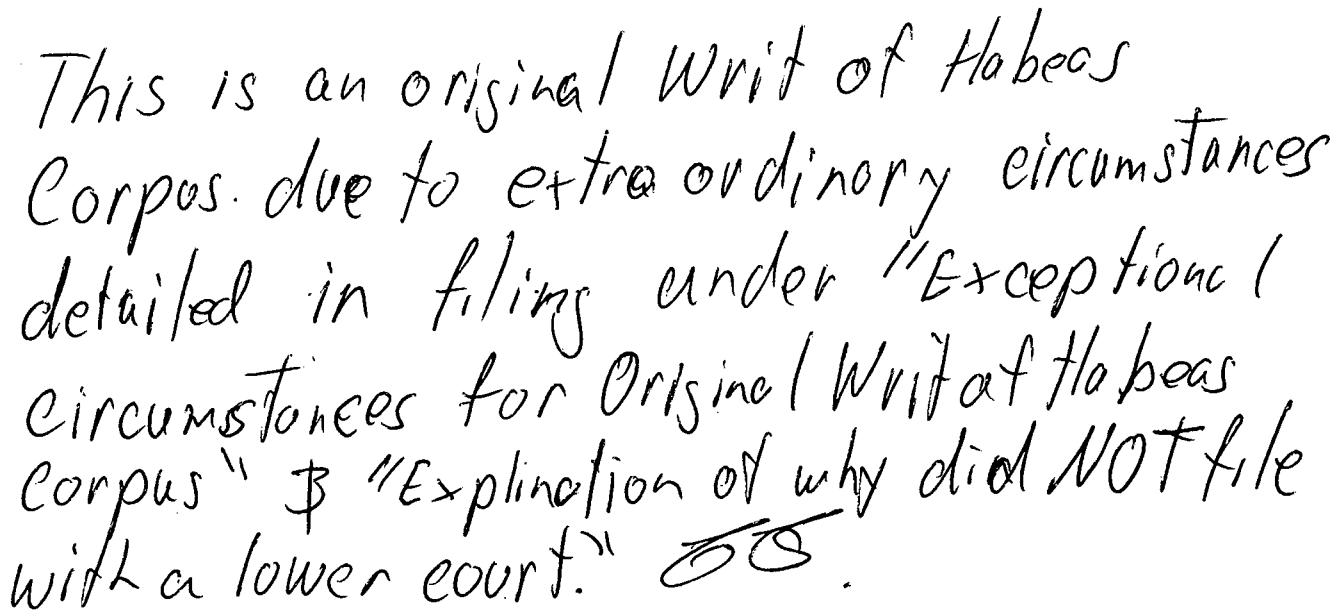 This is an original Writ of Habeas
Corpus. due to extra ordinary circumstances
detailed in filing under "Exceptional
circumstances for Original Writ of Habeas
Corpus" & "Explination of why did NOT file
with a lower court."